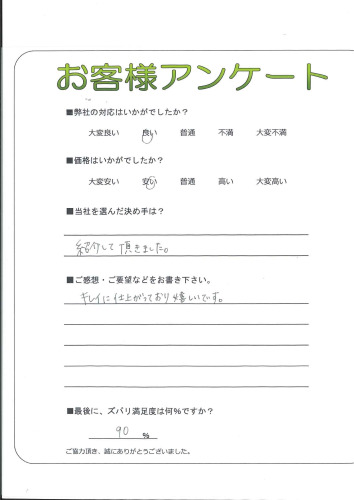 お客様アンケート
■弊社の対応はいかがでしたか？
大変良い 良い 普通 不満 大変不満
■価格はいかがでしたか？
大変安い 安い 普通 高い 大変高い
■当社を選んだ決め手は？
紹介して頂きました。
■ご感想・ご要望などをお書き下さい。
キレイに仕上がっており嬉しいです。
■最後に、ズバリ満足度は何%ですか？
90 %
ご協力頂き、誠にありがとうございました。